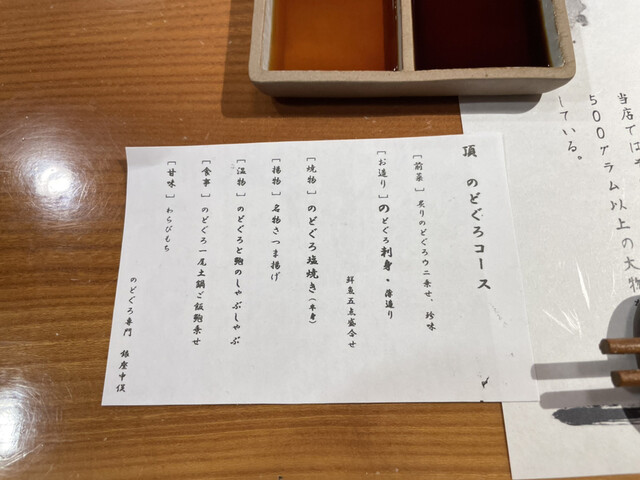 当店では
500グラム以上の大物
している。
頂 のどぐろコース
[前菜] 炙りのどぐろウニ乗せ、珍味
[お造り] のどぐろ刺身・薄造り
鮮魚五点盛合せ
[焼物] のどぐろ塩焼き(半身)
[揚物] 名物さつま揚げ
[温物] のどぐろと鮑のしゃぶしゃぶ
[食事] のどぐろ一尾土鍋ご飯鮑乗せ
[甘味] わらびもち
のどぐろ専門 銀座中俣